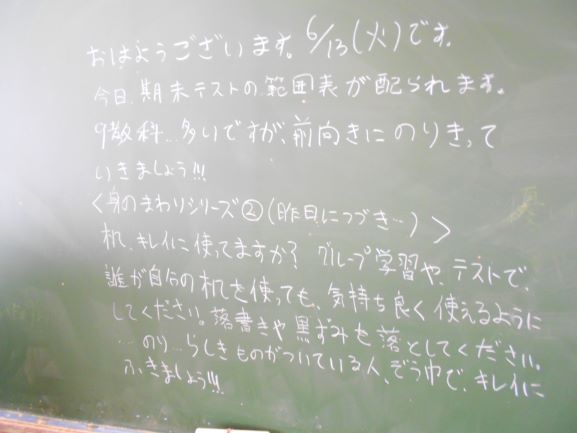 おはようございます。6/13(火)です。
今日、期末テストの範囲表が配られます。
9教科…多いですが、前向きにのりきって
いきましょう!!!
<身のまわりシリーズ②(昨日につづき…)>
机、キレイに使ってますか? グループ学習や、テストで、
誰が自分の机を使っても、気持ち良く使えるように
してください。落書きや黒ずみも落としてください。
…のり…らしきものがついている人、ぞう巾で、キレイに
ふきましょう!!!